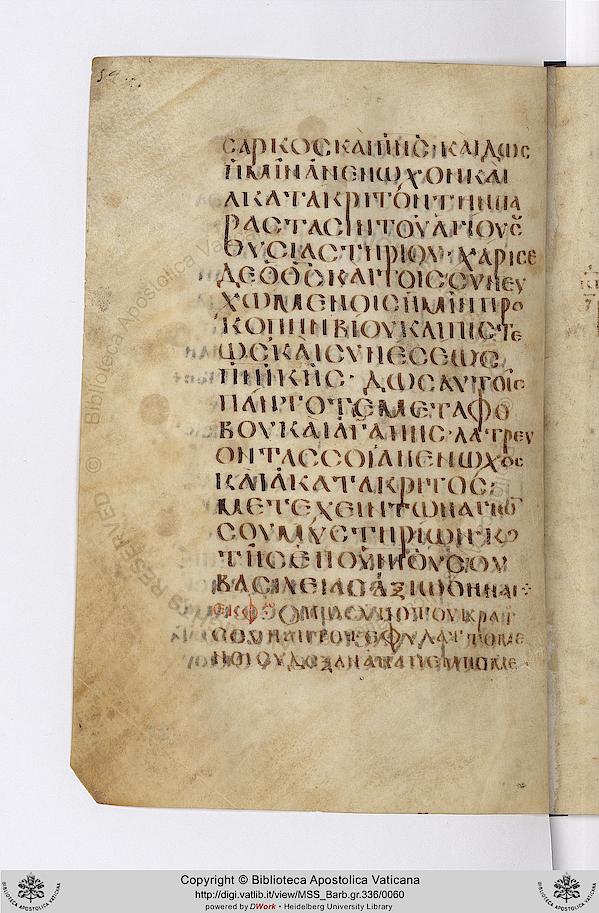 ΣΑΡΚΟΣ ΚΑΙ ΠΝΣ· ΚΑΙ ΔΩΣ
ΗΜΙΝ ΑΝΕΝΩΧΟΝ ΚΑΙ
ΑΚΑΤΑΚΡΙΤΟΝ ΤΗΝ ΠΑ
ΡΑΣΤΑΣΙΝ ΤΟΥ ΑΓΙΟΥ Σ
ΘΥΣΙΑΣΤΗΡΙΟΥ· ΧΑΡΙΣΕ
ΔΕ Ο ΘΣ ΚΑΙ ΤΟΙΣ ΣΥΝΕΥ
ΧΩΜΕΝΟΙΣ ΗΜΙΝ ΠΡΟ
ΚΟΠΗΝ ΒΙΟΥ ΚΑΙ ΠΙΣΤΕ
ΩΣ ΚΑΙ ΣΥΝΕΣΕΩΣ
ΠΝΙΚΗΣ· ΔΩΣ ΑΥΤΟΙΣ
ΠΑΝΤΟΤΕ ΜΕΤΑ ΦΟ
ΒΟΥ ΚΑΙ ΑΓΑΠΗΣ ΛΑΤΡΕΥ
ΟΝΤΑΣ ΣΟΙ ΑΝΕΝΩΧΟΣ
ΚΑΙ ΑΚΑΤΑΚΡΙΤΟΣ
ΜΕΤΕΧΕΙΝ ΤΩΝ ΑΓΙΩ
ΣΟΥ ΜΥΣΤΗΡΙΩΝ· ΚΑΙ
ΤΗΣ ΕΠΟΥΝΙΟΥ ΣΟΥ
ΒΑΣΙΛΕΙΑΣ ΑΞΙΩΘΗΝΑΙ
ΕΚΦ ΟΠΩΣ ΥΠΟ ΤΟΥ ΚΡΑΤ
ΣΟΥ ΠΑΝΤΟΤΕ ΦΥΛΑΤΤΟΜΕ
ΝΟΙ ΣΟΙ ΔΟΞΑΝ ΑΝΑΠΕΜΠΟΜΕ
Copyright © Biblioteca Apostolica Vaticana
http://digi.vatlib.it/view/MSS_Barb.gr.336/0060
powered by DWork • Heidelberg University Library